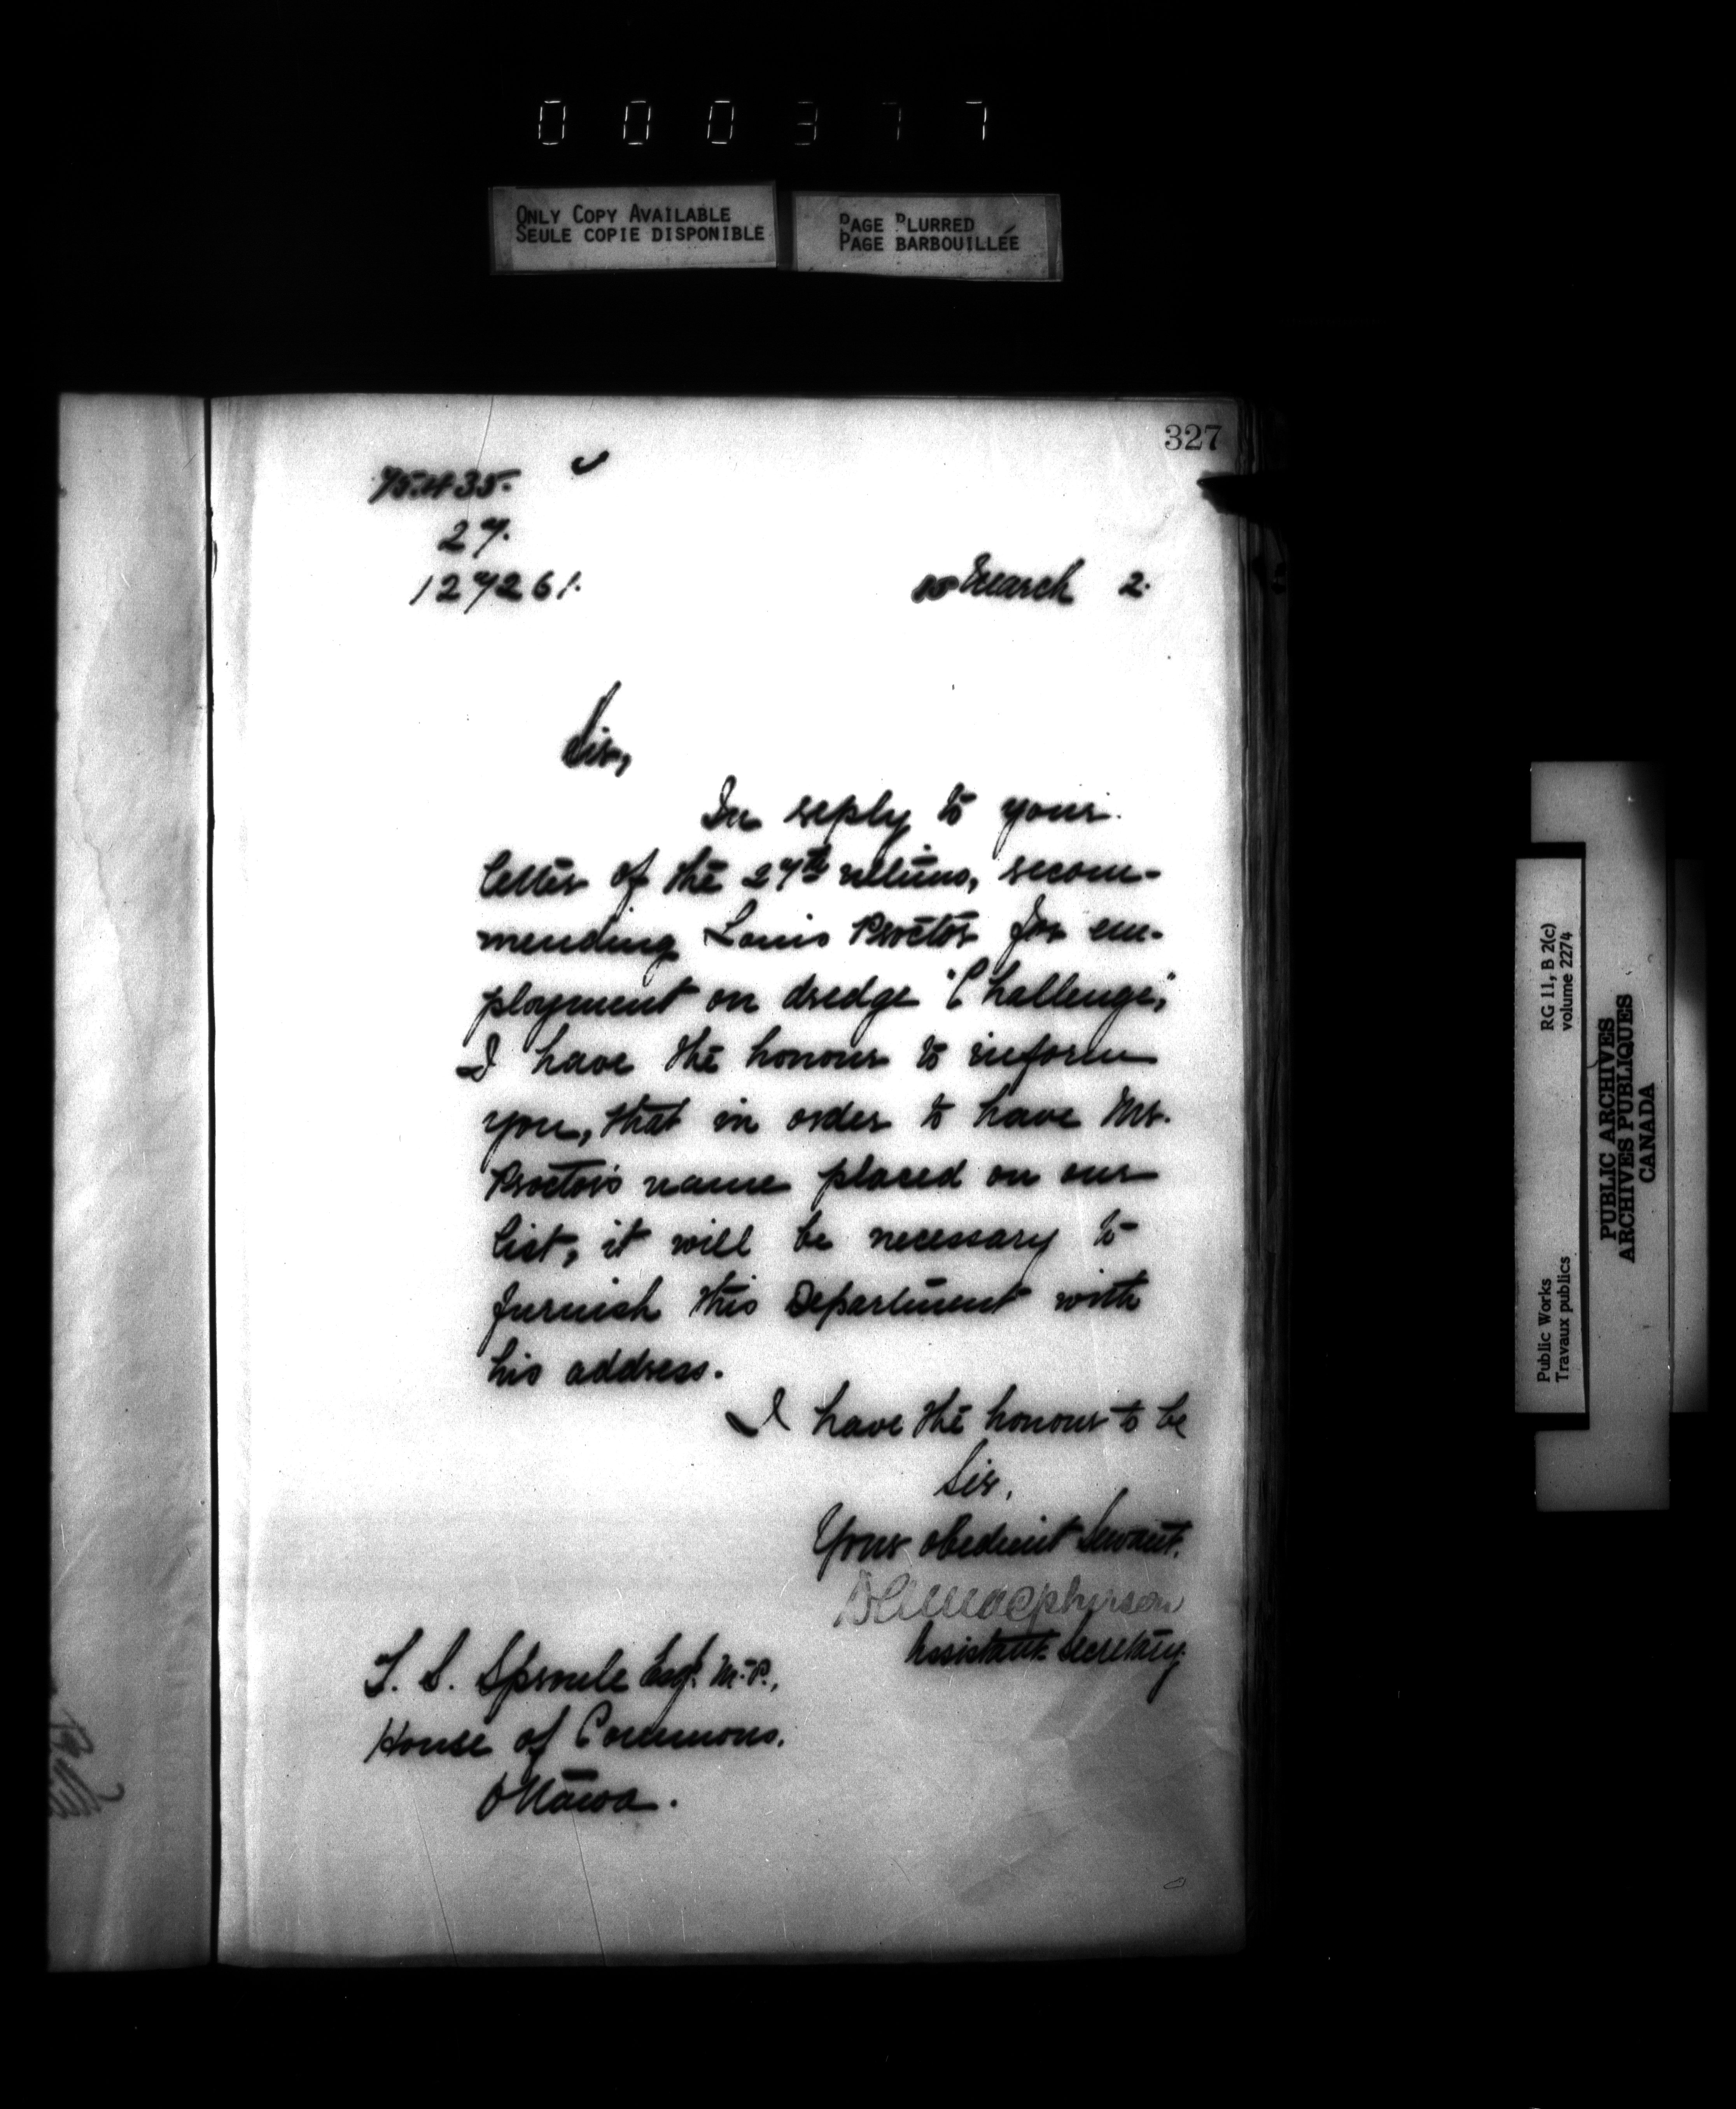 000377
ONLY COPY AVAILABLE
SEULE COPIE DISPONIBLE
PAGE BLURRED
PAGE BARBOUILLÉE
327
27.
127261.
March 2.
Sir,
In reply to your
letter of the 27th ultimo, recom-
mending Louis Proctor for em-
ployment on dredge "Challenge",
I have the honour to inform
you, that in order to have Mr.
Proctor's name placed on our
list, it will be necessary to
furnish this Department with
his address.
I have the honour to be
Sir,
Your obedient Servant.
Assistant Secretary.
T. S. Sproule Esq. M.P.,
House of Commons.
Ottawa.
Public Works
Travaux publics
RG 11, B 2(c)
volume 2274
PUBLIC ARCHIVES
ARCHIVES PUBLIQUES
CANADA